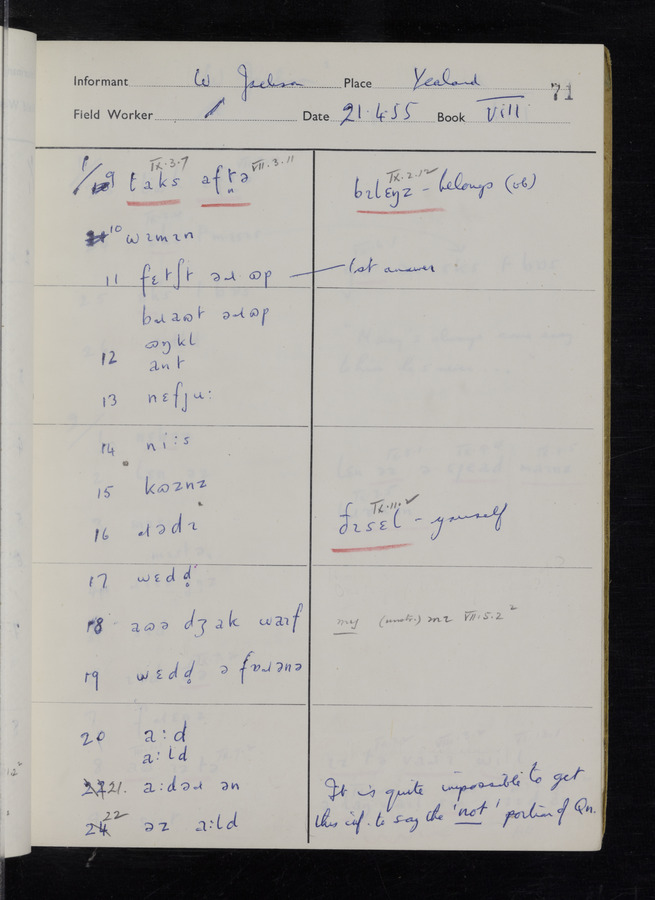 Informant W Jackson Place Yealand 71
Field Worker Date 21.4.55 Book VIII
IX.3.7 VII.3.11
9 taks aftə
10 wɪmɪn
11 fɛtʃt əɹ ɷp
bɹaɷt əɹɷp
12 ɷŋkl
ant
13 nɛfju:
14 ni:s
15 kɷznz
16
17 wɛdd̥
18 dʒak waɪf
19 wɛdd̥ ə
20 a:d
a:ld
21. a:dəɹ ən
22 əz a:ld
IX.2.12 ✓
bɪlɛŋz - belongs (vb)
1st answer
IX.11.2 ✓
ðɪsɛl - yourself
my (unstr.) mɪ VII.5.2²
It is quite impossible to get
this inf. to say the 'not' portion of Qn.